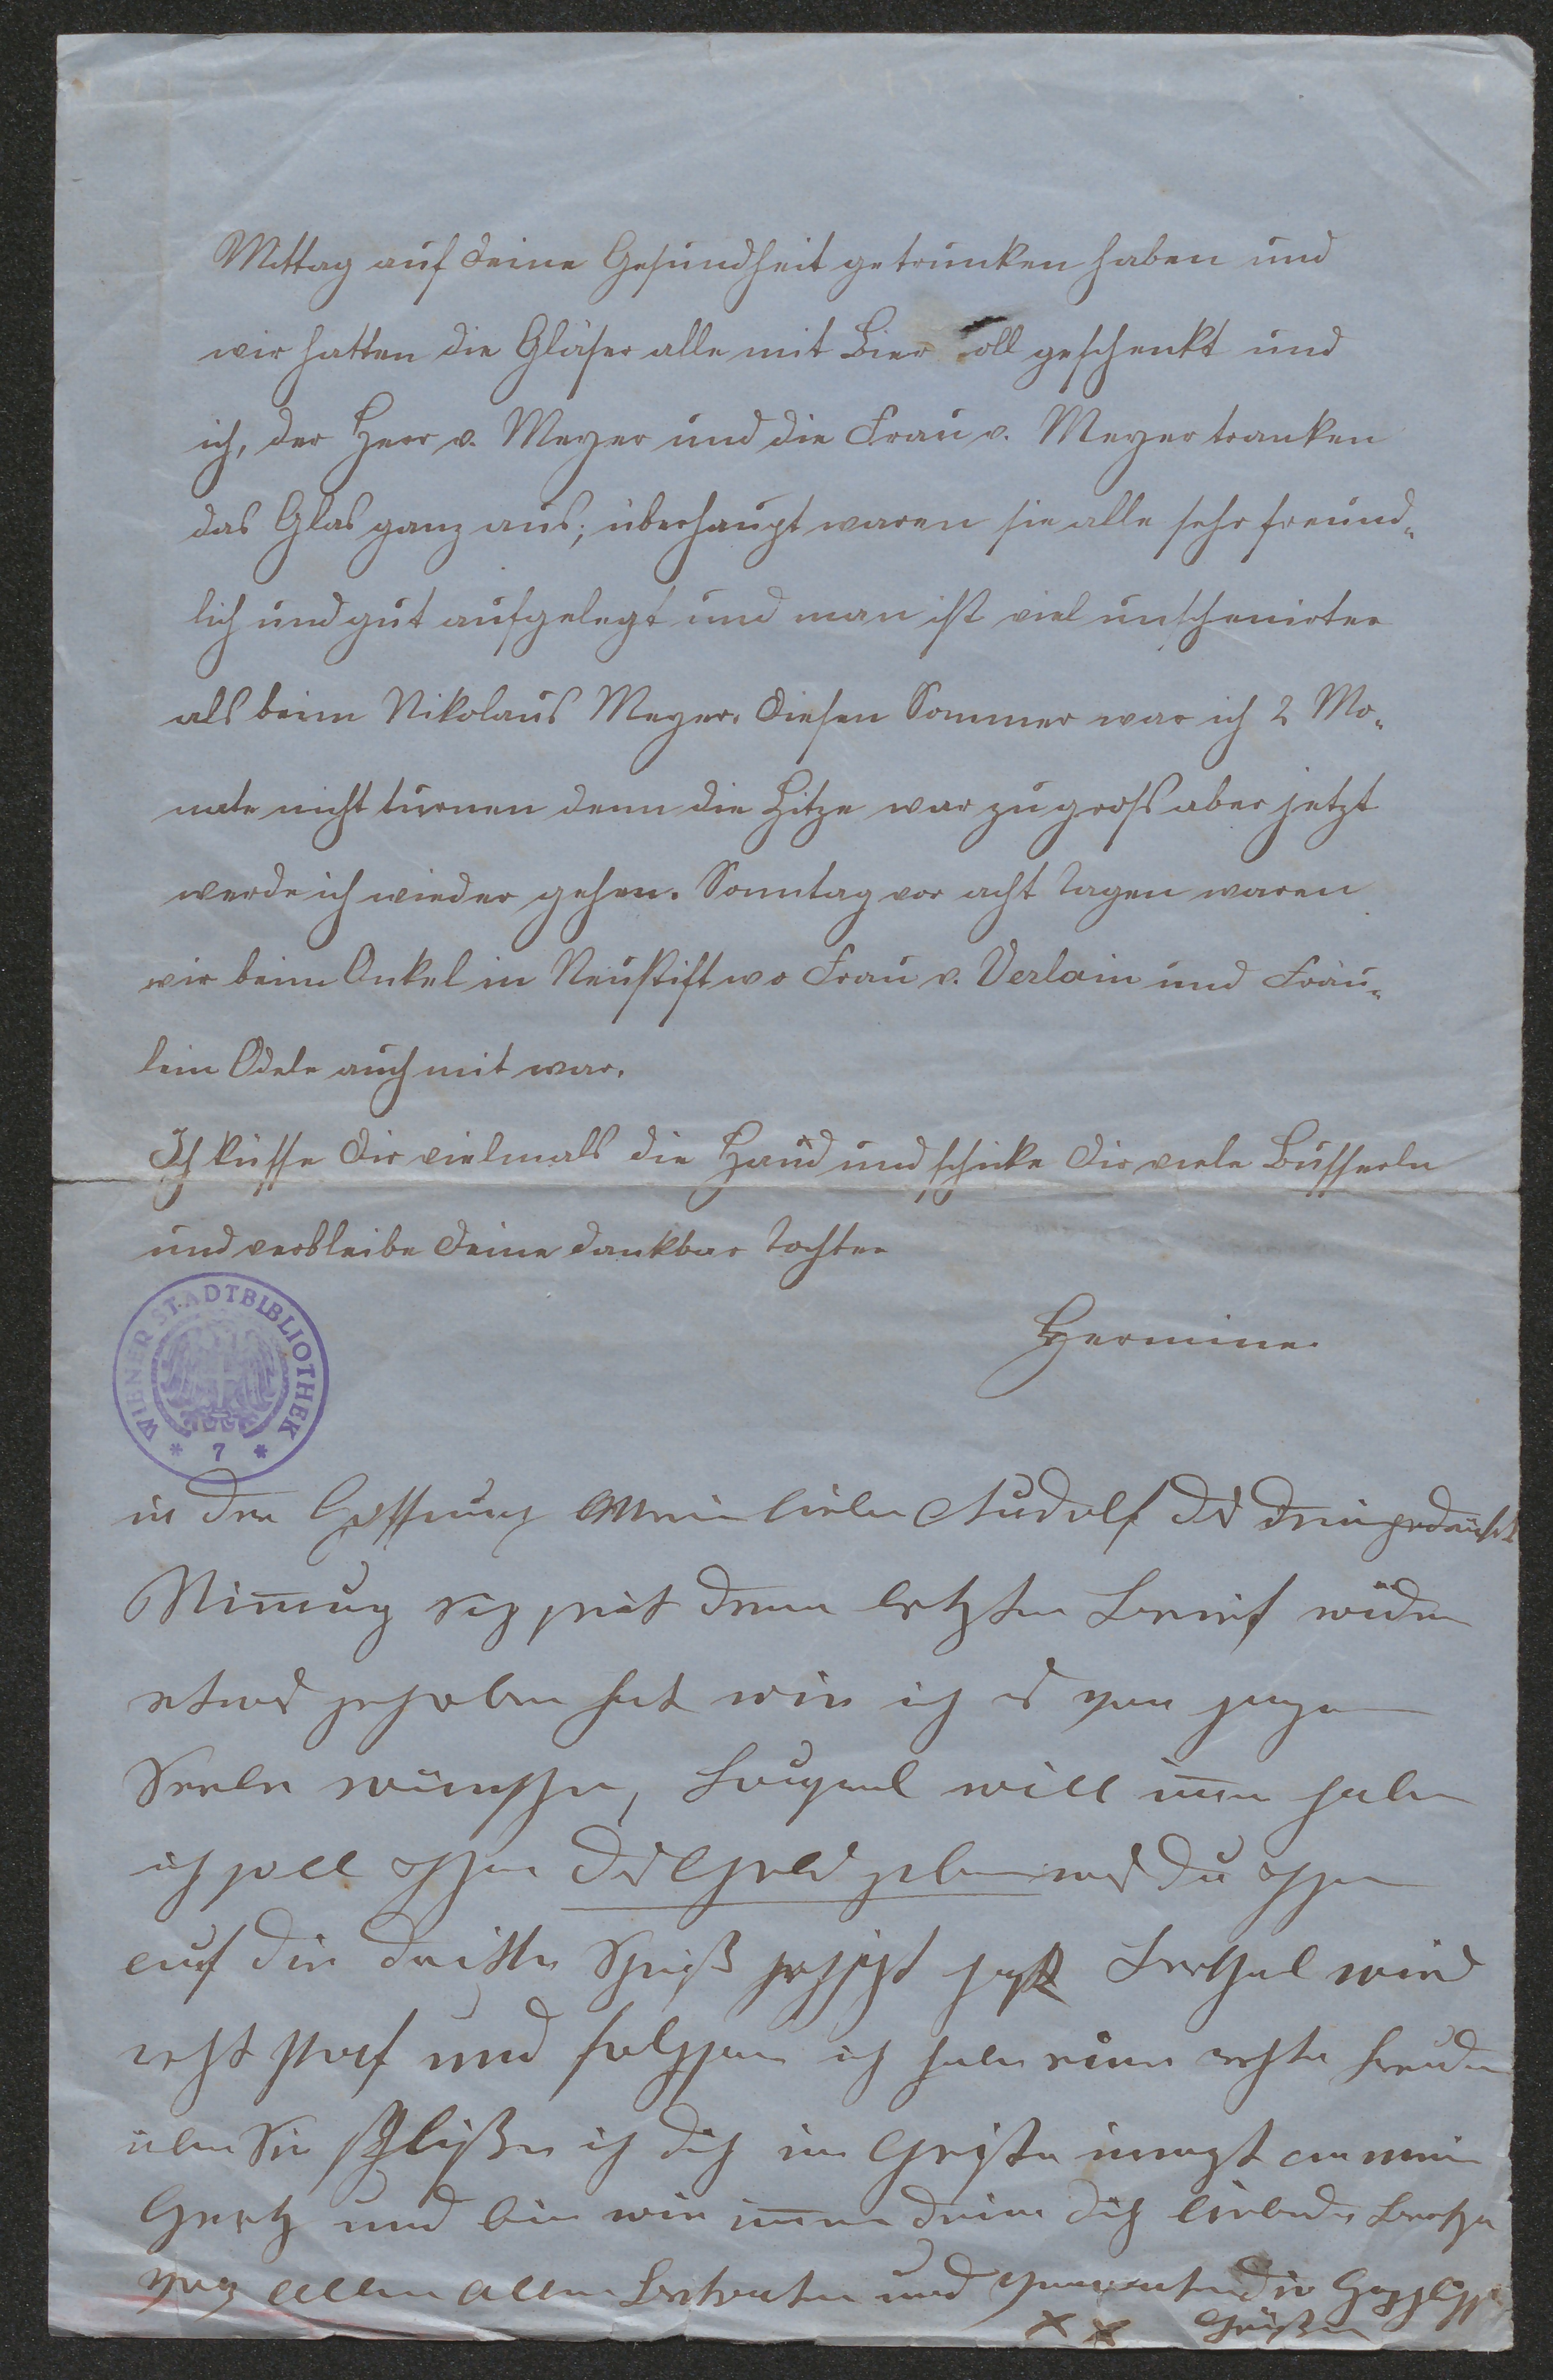 Mittag auf deine Gesundheit getrunken haben und
wir hatten die Gläser alle mit Bier oll geschenkt und
ich, der Herr v. Meyer und die Frau v. Meyer tranken
das Glas ganz aus; überhaupt waren sie alle sehr freund-
lich und gut aufgelegt und man ist viel unschenirter
als beim Nikolaus Meyer. Diesen Sommer war ich 2 Mo-
nate nicht turnen denn die Hitze war zu groß aber jetzt
werde ich wieder gehen. Sonntag vor acht Tagen waren
wir beim Onkel in Neustift wo Frau v. Verlain und Fräu-
lein Odele auch mit war.
Ich küsse dir vielmals die Hand und schicke dir viele Busserln
und verbleibe deine dankbar Tochter
Hermine.
WIENER STADTBIBLIOTHEK
* 7 *
in der Hoffnung Mein lieber Rudolf das dein
Stimung sich seit dem letzten Brief wider
etwas gehoben hat wie ich es von ganzer
Seele wünsche, will imer haben
ich soll das Geld geben was du
auf die dritte hast wird
recht straf und folgsam ich habe eine rechte Freude
über Sie schlißen ich dich im Geiste inigst an mein
Hertz und bin wie immer deine dich liebende
von allen allen Bekanten und Verwanten die
x x Grüßen